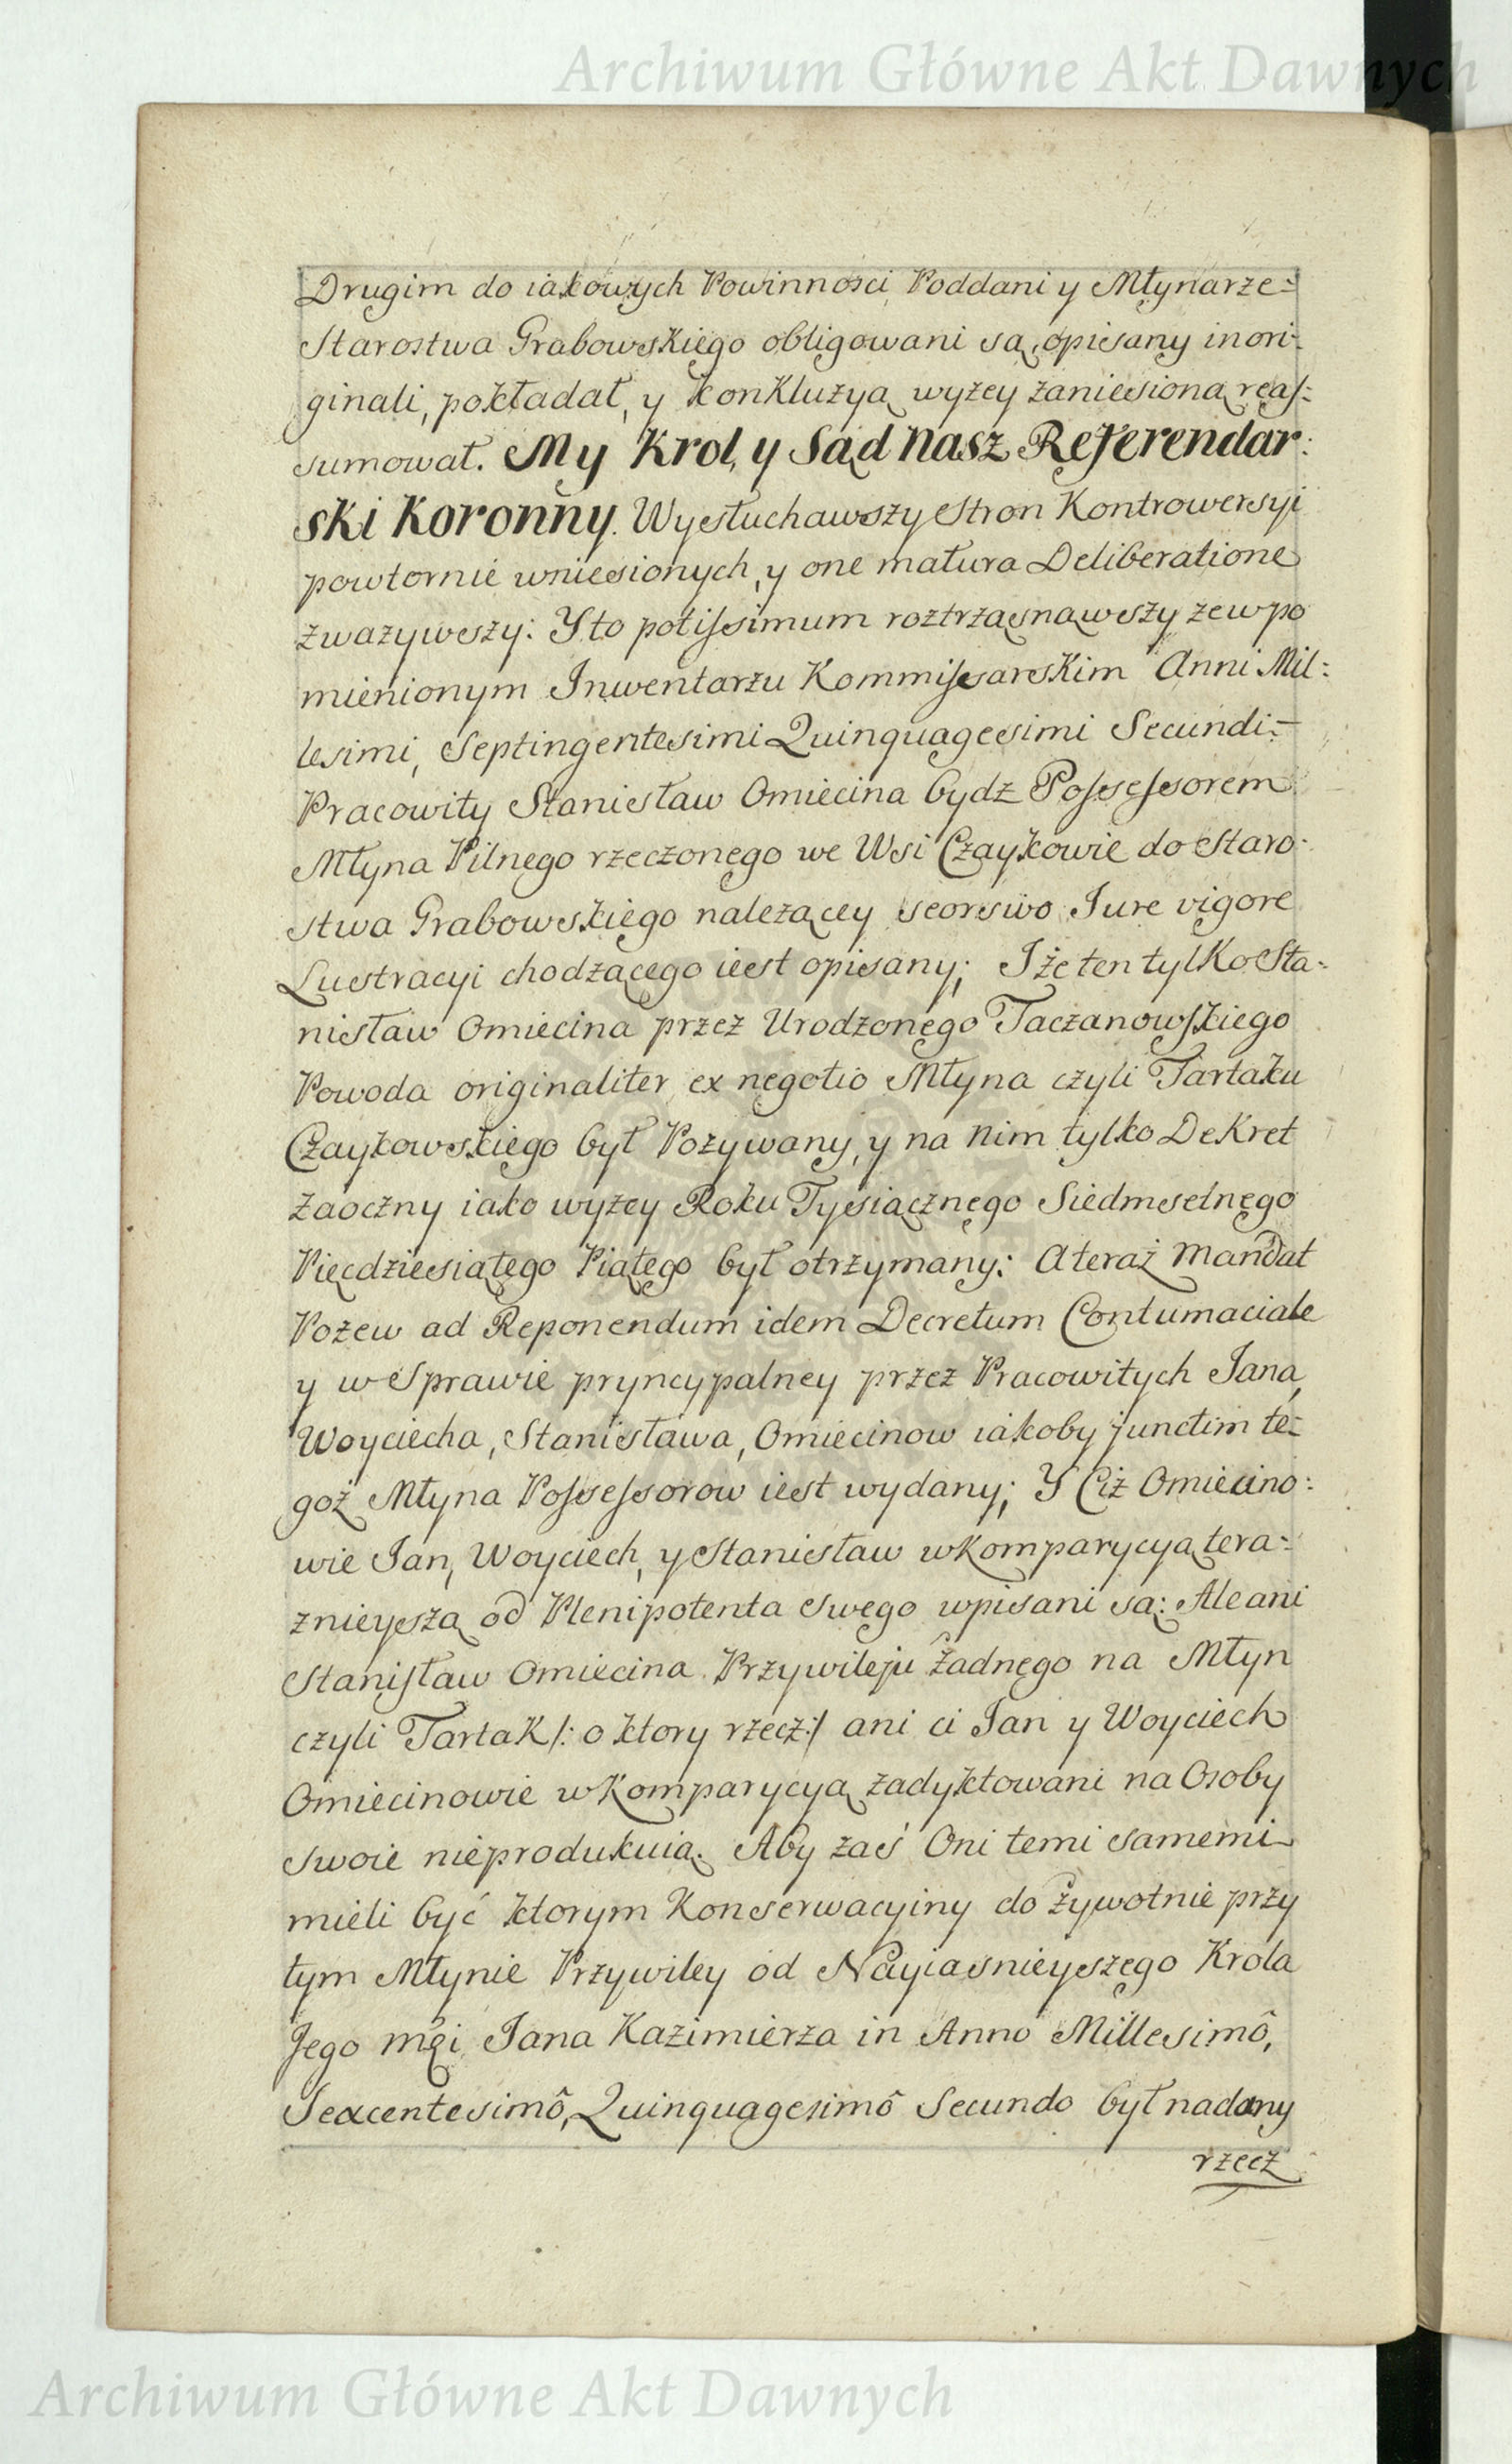 Archiwum Główne Akt Dawnych
Drugim do iakowych Powinnosci Poddani y Młynarze=
Starostwa Grabowskiego obligowani są, opisany in ori=
ginali, pokładał, y konkluzyą wyzey zaniesioną reas=
sumował. My Krol, y Sąd nasz Referendar:
ski Koronny. Wysłuchawszy Stron Kontrowersyi
powtornie wniesionych, y one matura Deliberatione
zwazywszy: Y to potissimum roztrząsnąwszy ze w po
mienionym Inwentarzu Kommissarskim Anni Mil=
lesimi, Septingentesimi Quinquagesimi Secundi=
Pracowity Stanisław Omiecina bydz Possessorem
Młyna Pilnego rzeczonego we Wsi Czaykowie do Staro=
stwa Grabowskiego nalezącey seorsivo Jure vigore
Lustracyi chodzącego iest opisany; I że ten tylko Sta=
nisław Omiecina przez Urodzonego Taczanowskiego
Powoda originaliter, ex negotio Młyna czyli Tartaku
Czaykowskiego był Pozywany, y na nim tylko Dekret
zaoczny iako wyzey Roku Tysiącznego Siedmsetnego
Pięcdziesiątego Piątego był otrzymany: A teraz Mandat
Pozew ad Reponendum idem Decretum Contumaciale
y w Sprawie pryncypalney przez Pracowitych Jana,
Woyciecha, Stanisława, Omiecinow iakoby junctim te=
goż Młyna Possessorow iest wydany; Y Ciż Omiecino=
wie Jan, Woyciech, y Stanisław w Komparycyą tera=
znieyszą od Plenipotenta swego wpisani są: Ale ani
Stanisław Omiecina Przywileju Żadnego na Młyn
czyli Tartak /: o ktory rzecz :/ ani ci Jan y Woyciech
Omiecinowie w Komparycyą zadyktowani na Osoby
swoie nieprodukuią. Aby zaś Oni temi samemi
mieli być ktorym Konserwacyiny do Żywotnie przy
tym Młynie Przywiley od Nayiasnieyszego Krola
Jego mci Jana Kazimierza in Anno Millesimô,
Sexcentesimô, Quinquagesimô Secundo był nadany
rzecz
Archiwum Główne Akt Dawnych